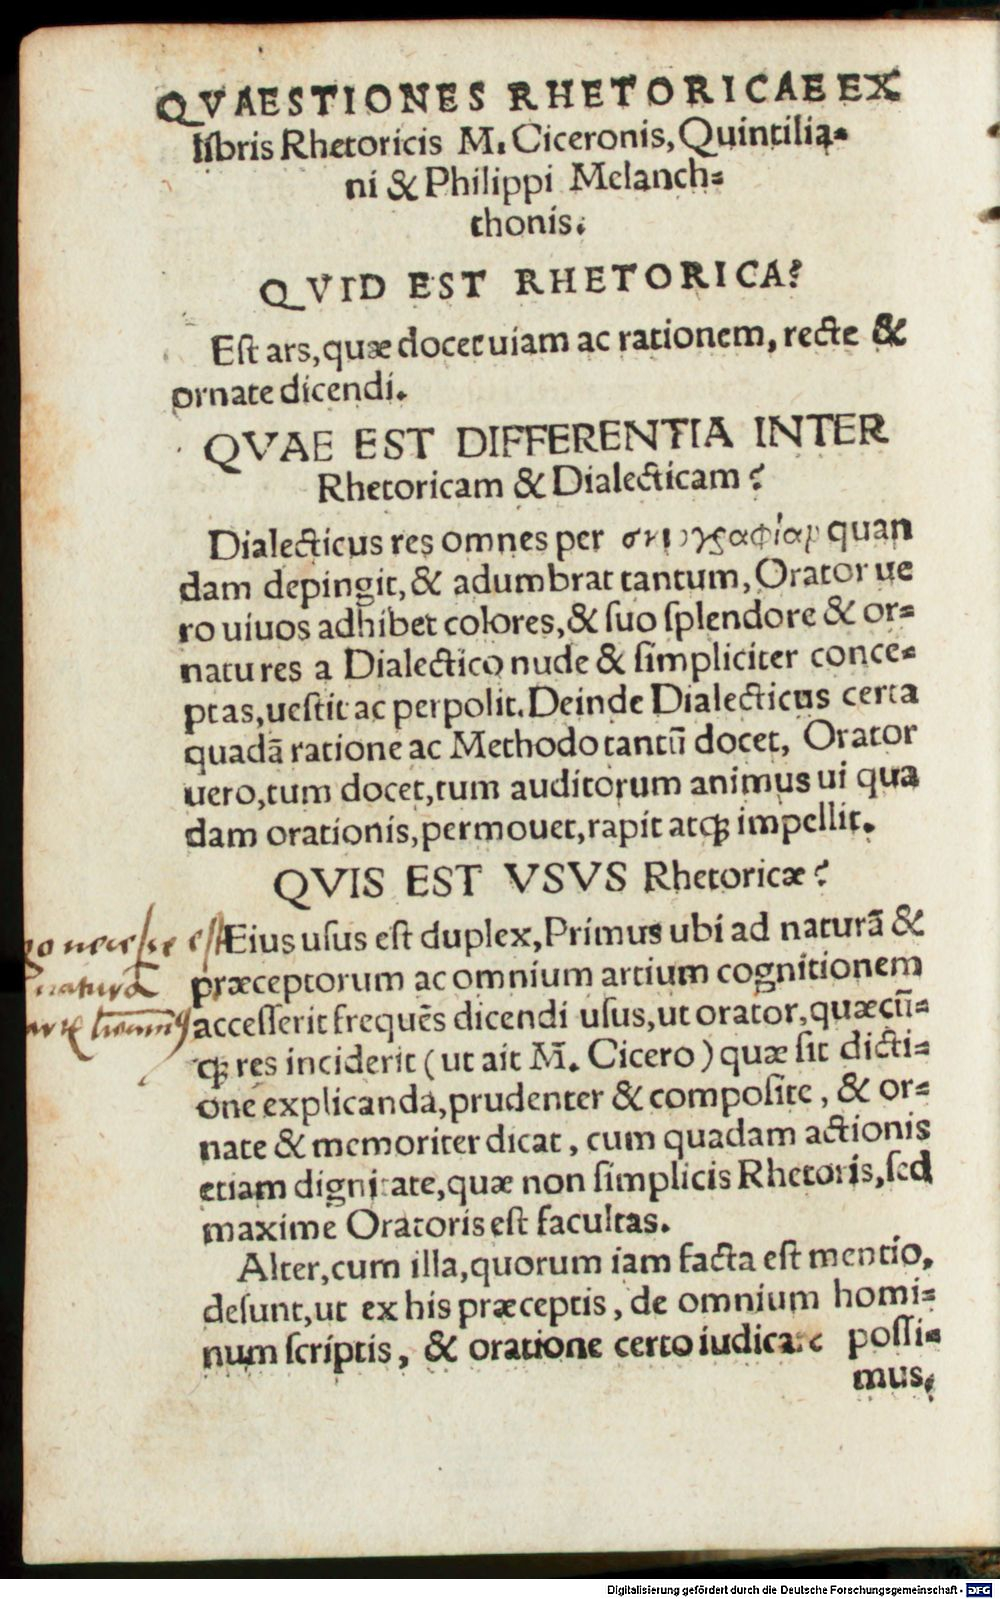 QVAESTIONES RHETORICAE EX
libris Rhetoricis M. Ciceronis, Quintilia-
ni & Philippi Melanch-
thonis.
QVID EST RHETORICA?
Est ars, quæ docet uiam ac rationem, recte &
ornate dicendi.
QVAE EST DIFFERENTIA INTER
Rhetoricam & Dialecticam?
Dialecticus res omnes per σκιογραφίαν quan
dam depingit, & adumbrat tantum, Orator ue
ro uiuos adhibet colores, & suo splendore & or-
natu res a Dialectico nude & simpliciter conce-
ptas, uestit ac perpolit. Deinde Dialecticus certa
quadã ratione ac Methodo tantũ docet, Orator
uero, tum docet, tum auditorum animus ui qua
dam orationis, permouet, rapit atq; impellit.
QVIS EST VSVS Rhetoricæ?
Eius usus est duplex, Primus ubi ad naturã &
præceptorum ac omnium artium cognitionem
accesserit frequẽs dicendi usus, ut orator, quæcũ-
q; res inciderit (ut ait M. Cicero) quæ sit dicti-
one explicanda, prudenter & composite, & or-
nate & memoriter dicat, cum quadam actionis
etiam dignitate, quæ non simplicis Rhetoris, sed
maxime Oratoris est facultas.
Alter, cum illa, quorum iam facta est mentio,
desunt, ut ex his præceptis, de omnium homi-
num scriptis, & oratione certo iudicare possi-
mus.
necesse est
natura
Digitalisierung gefördert durch die Deutsche Forschungsgemeinschaft - DFG